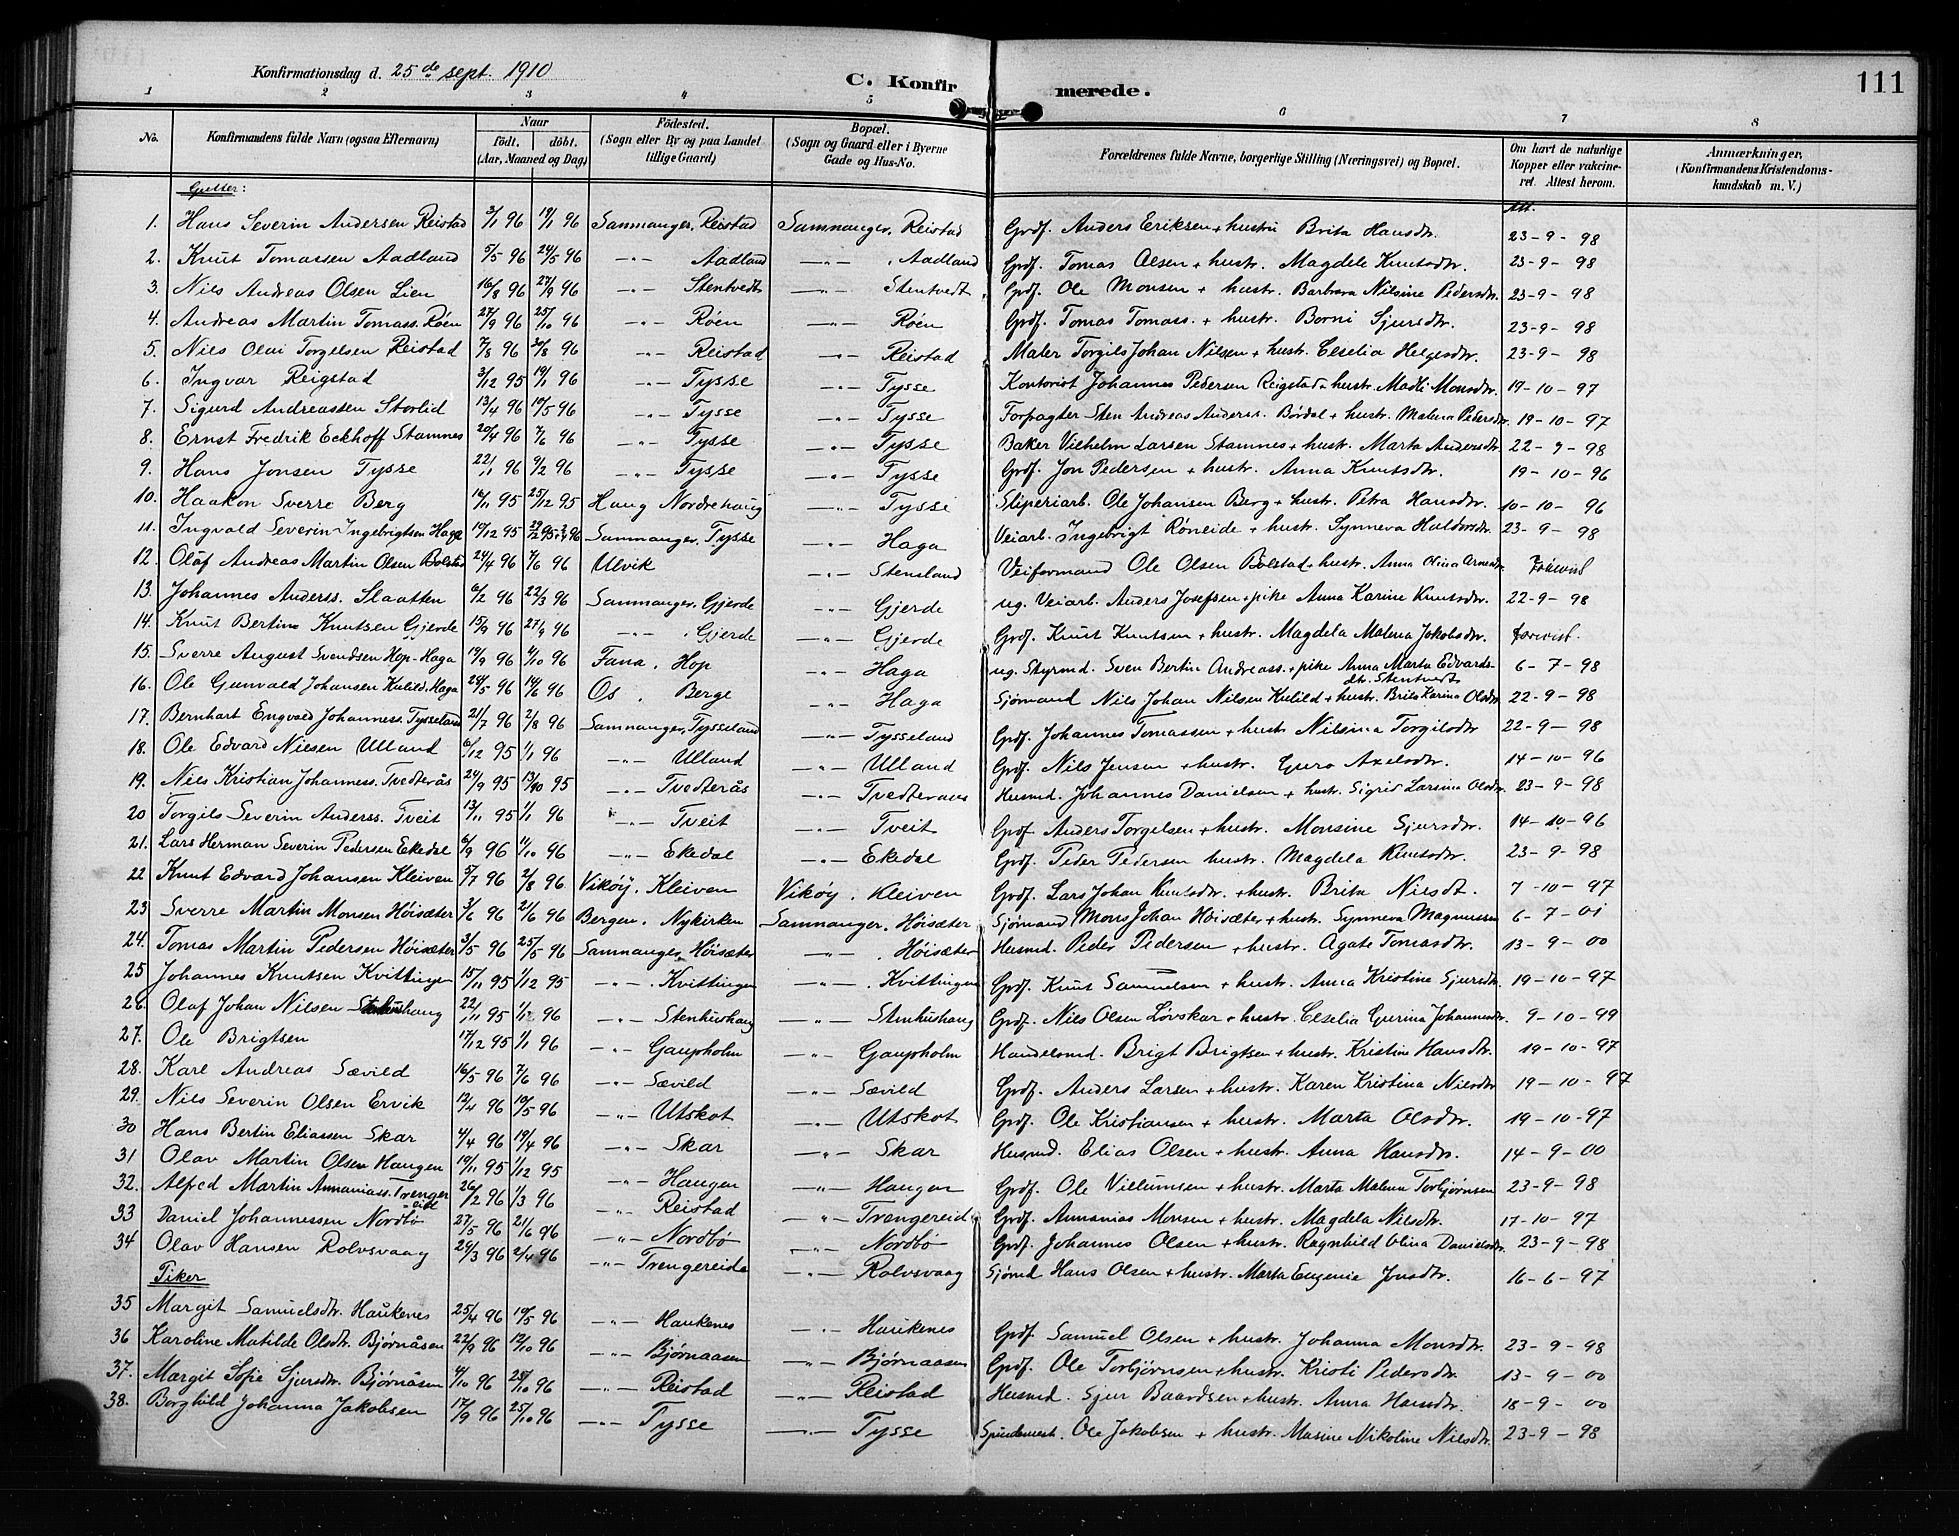 Konfirmationsdag d. 25de sept. 1910
C. Konfirmerede.
111
1 2 3 4 5 6 7 8
No. Konfirmandens fulde Navn (ogsaa Efternavn) Naar født. døbt. (Aar, Maaned og Dag) Fødested. (Sogn eller By og paa Landet tillige Gaard) Bopæl. (Sogn og Gaard eller i Byerne Gade og Hus-No. Forældrenes fulde Navne, borgerlige Stilling (Næringsvei) og Bopæl. Om havt de naturlige Kopper eller vakcineret. Attest herom. Anmærkninger. (Konfirmandens Kristendomskundskab m. V.)
Gutter:
1. Hans Severin Andersen Reistad 3/1 96 19/1 96 Samnanger, Reistad Samnanger, Reistad Grdf. Anders Eriksen + hustru Brita Hansdtr. 23-9-98
2. Knut Tomassen Aadland 5/5 96 24/5 96 -"- Aadland -"- Aadland Grdf. Tomas Olsen + hustr. Magdele Knutsdtr. 23-9-98
3. Nils Andreas Olsen Lien 16/8 96 27/9 96 -"- Stentvedt -"- Stentvedt Grdf. Ole Monsen + hustr. Barbara Nilsine Pedersdtr. 23-9-98
4. Andreas Martin Tomass. Røen 27/9 96 25/10 96 -"- Røen -"- Røen Grdf. Tomas Tomass. + hustr. Borni Sjursdtr. 23-9-98
5. Nils Olai Torgelsen Reistad 7/8 96 30/8 96 -"- Reistad -"- Reistad Maler Torgils Johan Nilsen + hustr. Cecelia Helgesdtr. 23-9-98
6. Ingvar Reigstad 3/12 95 19/1 96 -"- Tysse -"- Tysse Kontorist Johannes Pedersen Reigstad + hustr. Madli Monsdtr. 19-10-97
7. Sigurd Andreassen Storlid 13/4 96 10/5 96 -"- Tysse -"- Tysse Forpagter Sten Andreas Anderss. Børdal + hustr. Malena Pedersdtr. 19-10-97
8. Ernst Fredrik Eckhoff Stamnes 20/4 96 7/6 96 -"- Tysse -"- Tysse Baker Vilhelm Larsen Stamnes + hustr. Marta Andersdtr. 22-9-98
9. Hans Jonsen Tysse 22/11 96 9/2 96 -"- Tysse -"- Tysse Grdf. Jon Pedersen + hustr. Anna Knutsdtr. 19-10-96
10. Haakon Sverre Berg 14/11 95 25/12 95 Haug Nordrehaug -"- Tysse Sliperiarb. Ole Johansen Berg + hustr. Petra Hansdtr. 10-10-96
11. Ingvald Severin Ingebrigtsen Haga 10/12 95 Samnanger, Tysse -"- Haga Veiarb. Ingebrigt Røneide + hustr. Synneva Haldorsdtr. 23-9-98
12. Olaf Andreas Martin Olsen Bolstad 24/4 96 7/6 96 Ulvik -"- Stensland Veiformand Ole Olsen Bolstad + hustr. Anna Olina Arnesdtr.
13. Johannes Anderss. Slaatten 6/2 96 22/3 96 Samnanger, Gjerde -"- Gjerde ug. Veiarb. Anders Josefsen + pike Anna Karine Knutsdtr. 22-9-98
14. Knut Bertin Knutsen Gjerde 15/9 96 27/9 96 -"- Gjerde -"- Gjerde Grdf. Knut Knutsen + hustr. Magdela Malena Jakobsdtr.
15. Sverre August Svendsen Hop-Haga 14/9 96 4/10 96 Fana, Hop -"- Haga ug. Styrmd. Sven Bertin Andreass. + pike Anna Marta Edvardsdtr. Stentvedt 6-7-98
16. Ole Gunvald Johansen Kulild. Haga 24/5 96 14/6 96 Os, Berge -"- Haga Sjømand Nils Johan Nilsen Kulild + hustr. Brita Karina Olsdtr 22-9-98
17. Bernhart Engvald Johanness. Tysseland 21/7 96 2/8 96 Samnanger, Tysseland -"- Tysseland Grdf. Johannes Tomassen + hustr Nilsina Torgilsdtr 22-9-98
18. Ole Edvard Nilsen Ulland 6/12 95 1/1 96 -"- Ulland -"- Ulland Grdf. Nils Jensen + hustr. Guro Axelsdtr. 14-10-96
19. Nils Kristian Johanness. Tvedterås 24/9 95 13/10 95 -"- Tvedterås -"- Tvedteraas Husmd. Johannes Danielsen + hustr. Sigrid Larsina Olsdtr. 23-9-98
20 Torgils Severin Anderss. Tveit 13/11 95 1/1 96 -"- Tveit -"- Tveit Grdf Anders Torgelsen + hustr. Monsine Sjursdtr. 14-10-96
21. Lars Herman Severin Pedersen Eekedal 6/9 96 11/10 96 -"- Ekedal -"- Ekedal Grdf. Peder Pedersen hustr. Magdela Knutsdtr. 23-9-98
22 Knut Edvard Johansen Kleiven 5/7 96 2/8 96 Vikøy, Kleiven Vikøy, Kleiven Grdf. Lars Johan Knutsdtr. + hustr. Brita Nilsdt. 7-10-97
23 Sverre Martin Monsen Høisæter 3/6 96 21/6 96 Bergen, Nykirken Samnanger, Høisæter Sjømand Mons Johan Høisæter + hustr. Synneva Magnussen 6-7-01
24. Tomas Martin Pedersen Høisæter 3/5 96 25/5 96 Samnanger, Høisæter -"- Høisæter Husmd. Peder Pedersen + hustr. Agate Tomasdtr. 13-9-00
25 Johannes Knutsen Kvittingen 15/11 95 1/12 95 -"- Kvittingen -"- Kvittingen Grdf. Knut Samuelsen + hustr. Anna Kristine Sjursdtr. 19-10-97
26. Olaf Johan Nilsen Stenhushaug 22/11 95 1/12 96 -"- Stenhushaug -"- Stenhushaug Grdf. Nils Olsen Løvskar + hustr. Ceselia Gurina Johannesdtr. 9-10-99
27. Ole Brigtsen 17/12 95 1/1 96 -"- Gaupholm -"- Gaupholm Handelsmd. Brigt Brigtsen + hustr. Kristine Hansdtr. 19-10-97
28. Karl Andreas Sævild 16/5 96 7/6 96 -"- Sævild -"- Sævild Grdf. Anders Larsen + hustr. Karen Kristina Nilsdtr 19-10-97
29. Nils Severin Olsen Ervik 12/4 96 10/5 96 -"- Utskot -"- Utskot Grdf. Ole Kristiansen + hustr. Marta Olsdtr. 19-10-97
30 Hans Bertin Eliassen Skar 4/4 96 19/4 96 -"- Skar -"- Skar Husmd. Elias Olsen + hustr. Anna Hansdtr. 14-9-00
31 Olav Martin Olsen Haugen 10/11 95 1/12 95 -"- Haugen -"- Haugen Grdf. Ole Villumsen + hustr. Marta Malena Torbjørnsen 23-9-98
32. Alfred Martin Annaniass. Trengereid 26/2 96 1/3 96 -"- Reistad -"- Trengereid Grdf. Annanias Monsen + hustr. Magdela Nilsdtr. 17-10-97
33 Daniel Johannessen Nordbø 27/5 96 21/6 96 -"- Nordbø -"- Nordbø Grdf. Johannes Olsen + hustr. Ragnhild Olina Danielsdtr. 23-9-98
34 Olav Hansen Rolvsvaag 29/3 96 2/4 96 -"- Trengereide -"- Rolvsvaag Sjømd Hans Olsen + hustr. Marta Eugenie Jonsdtr. 16-6-97
Piker
35 Margit Samuelsdtr. Haukenes 25/4 96 10/5 96 -"- Haukenes -"- Haukenes Grdf. Samuel Olsen + hustr. Johanna Monsdtr. 23-9-98
36 Karoline Matilde Olsdtr. Bjørnåsen 22/9 96 12/10 96 -"- Bjørnaasen -"- Bjørnaasen Grdf. Ole Torbjørnsen + hustr. Kristi Pedersdtr. 13-9-00
37. Margit Sofie Sjursdtr. Bjørnåsen 4/10 96 25/10 96 -"- Reistad -"- Reistad Husmd. Sjur Baardsen + hustr. Anna Hansdtr. 18-9-00
38. Borghild Johanna Jakobsen 17/9 96 25/10 96 -"- Tysse -"- Tysse Spindemest. Ole Jakobsen + hustr. Masine Nikoline Nilsdtr. 23-9-98